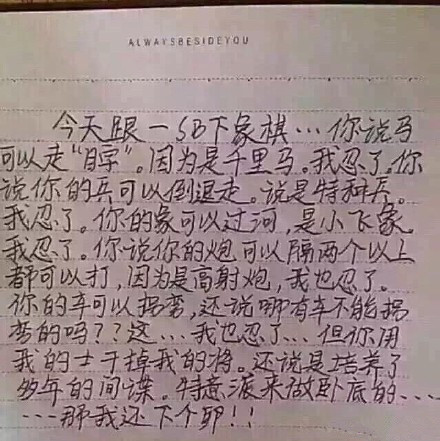 ALWAYSBESIDEYOU
今天跟一SB下象棋…你说马
可以走“目字”。因为是千里马。我忍了。你
说你的兵可以倒退走。说是特种兵。
我忍了。你的象可以过河,是小飞象。
我忍了。你说你的炮可以隔两个以上
都可以打,因为是高射炮,我也忍了。
你的车可以拐弯,还说哪有车不能拐
弯的吗??这…我也忍了…但你用
我的士干掉我的将。还说是培养了
多年的间谍。特意派来做卧底的…
…那我还下个卵!!